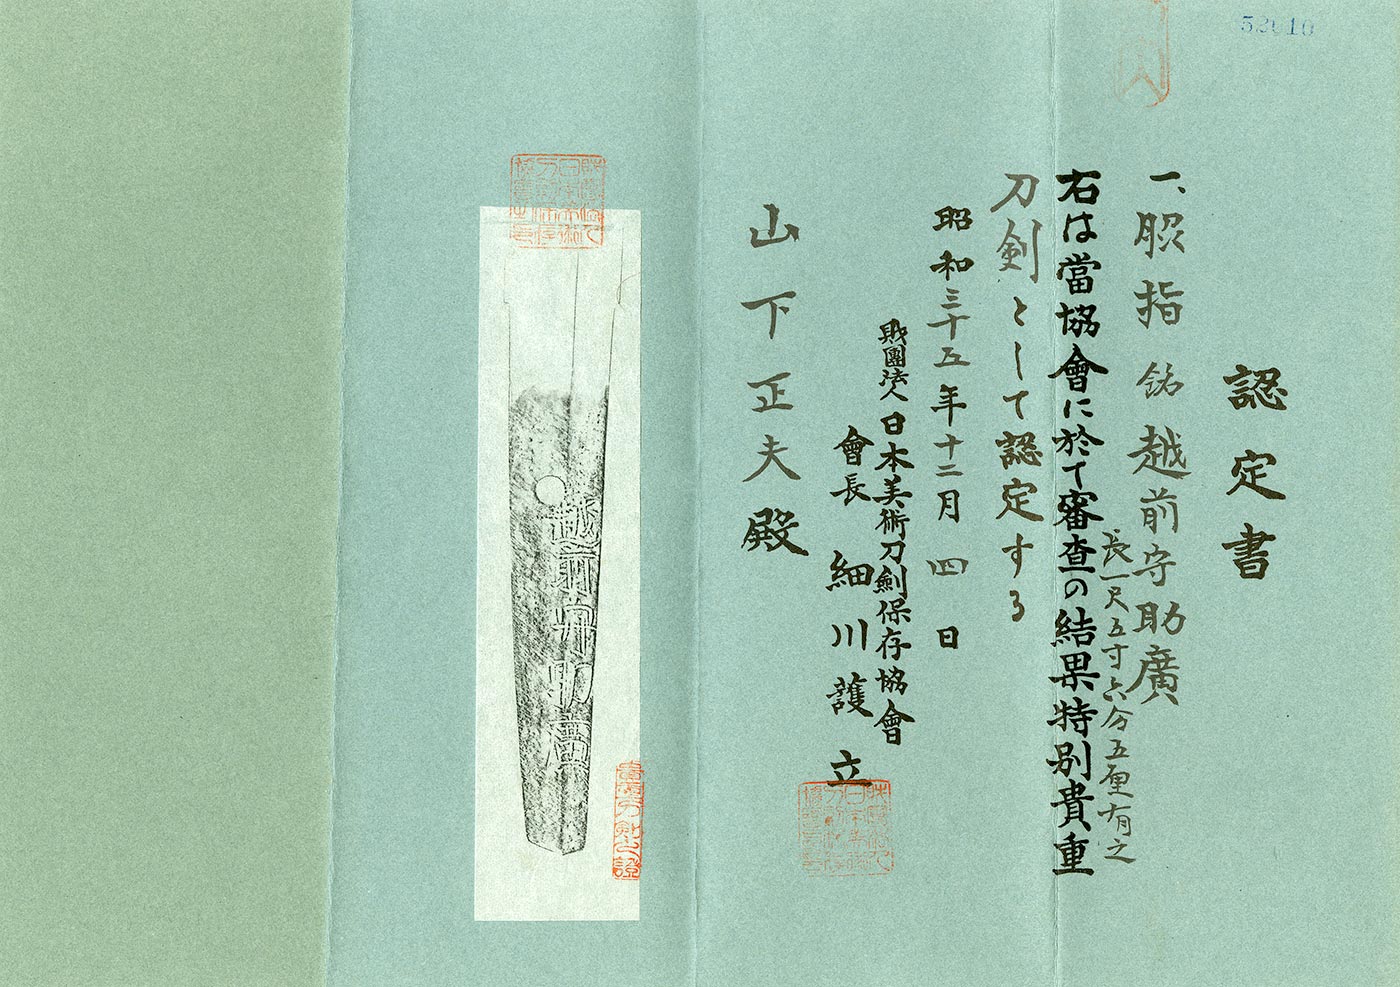 53010
認定書
一、脇指 銘 越前守助廣
長一尺五寸六分五厘有之
右は當協會に於て審査の結果特別貴重
刀剣として認定する
昭和三十五年十二月四日
財團法人日本美術刀劍保存協會
會長 細川護立
山下正夫殿
越前守助廣
貴重刀剣之證